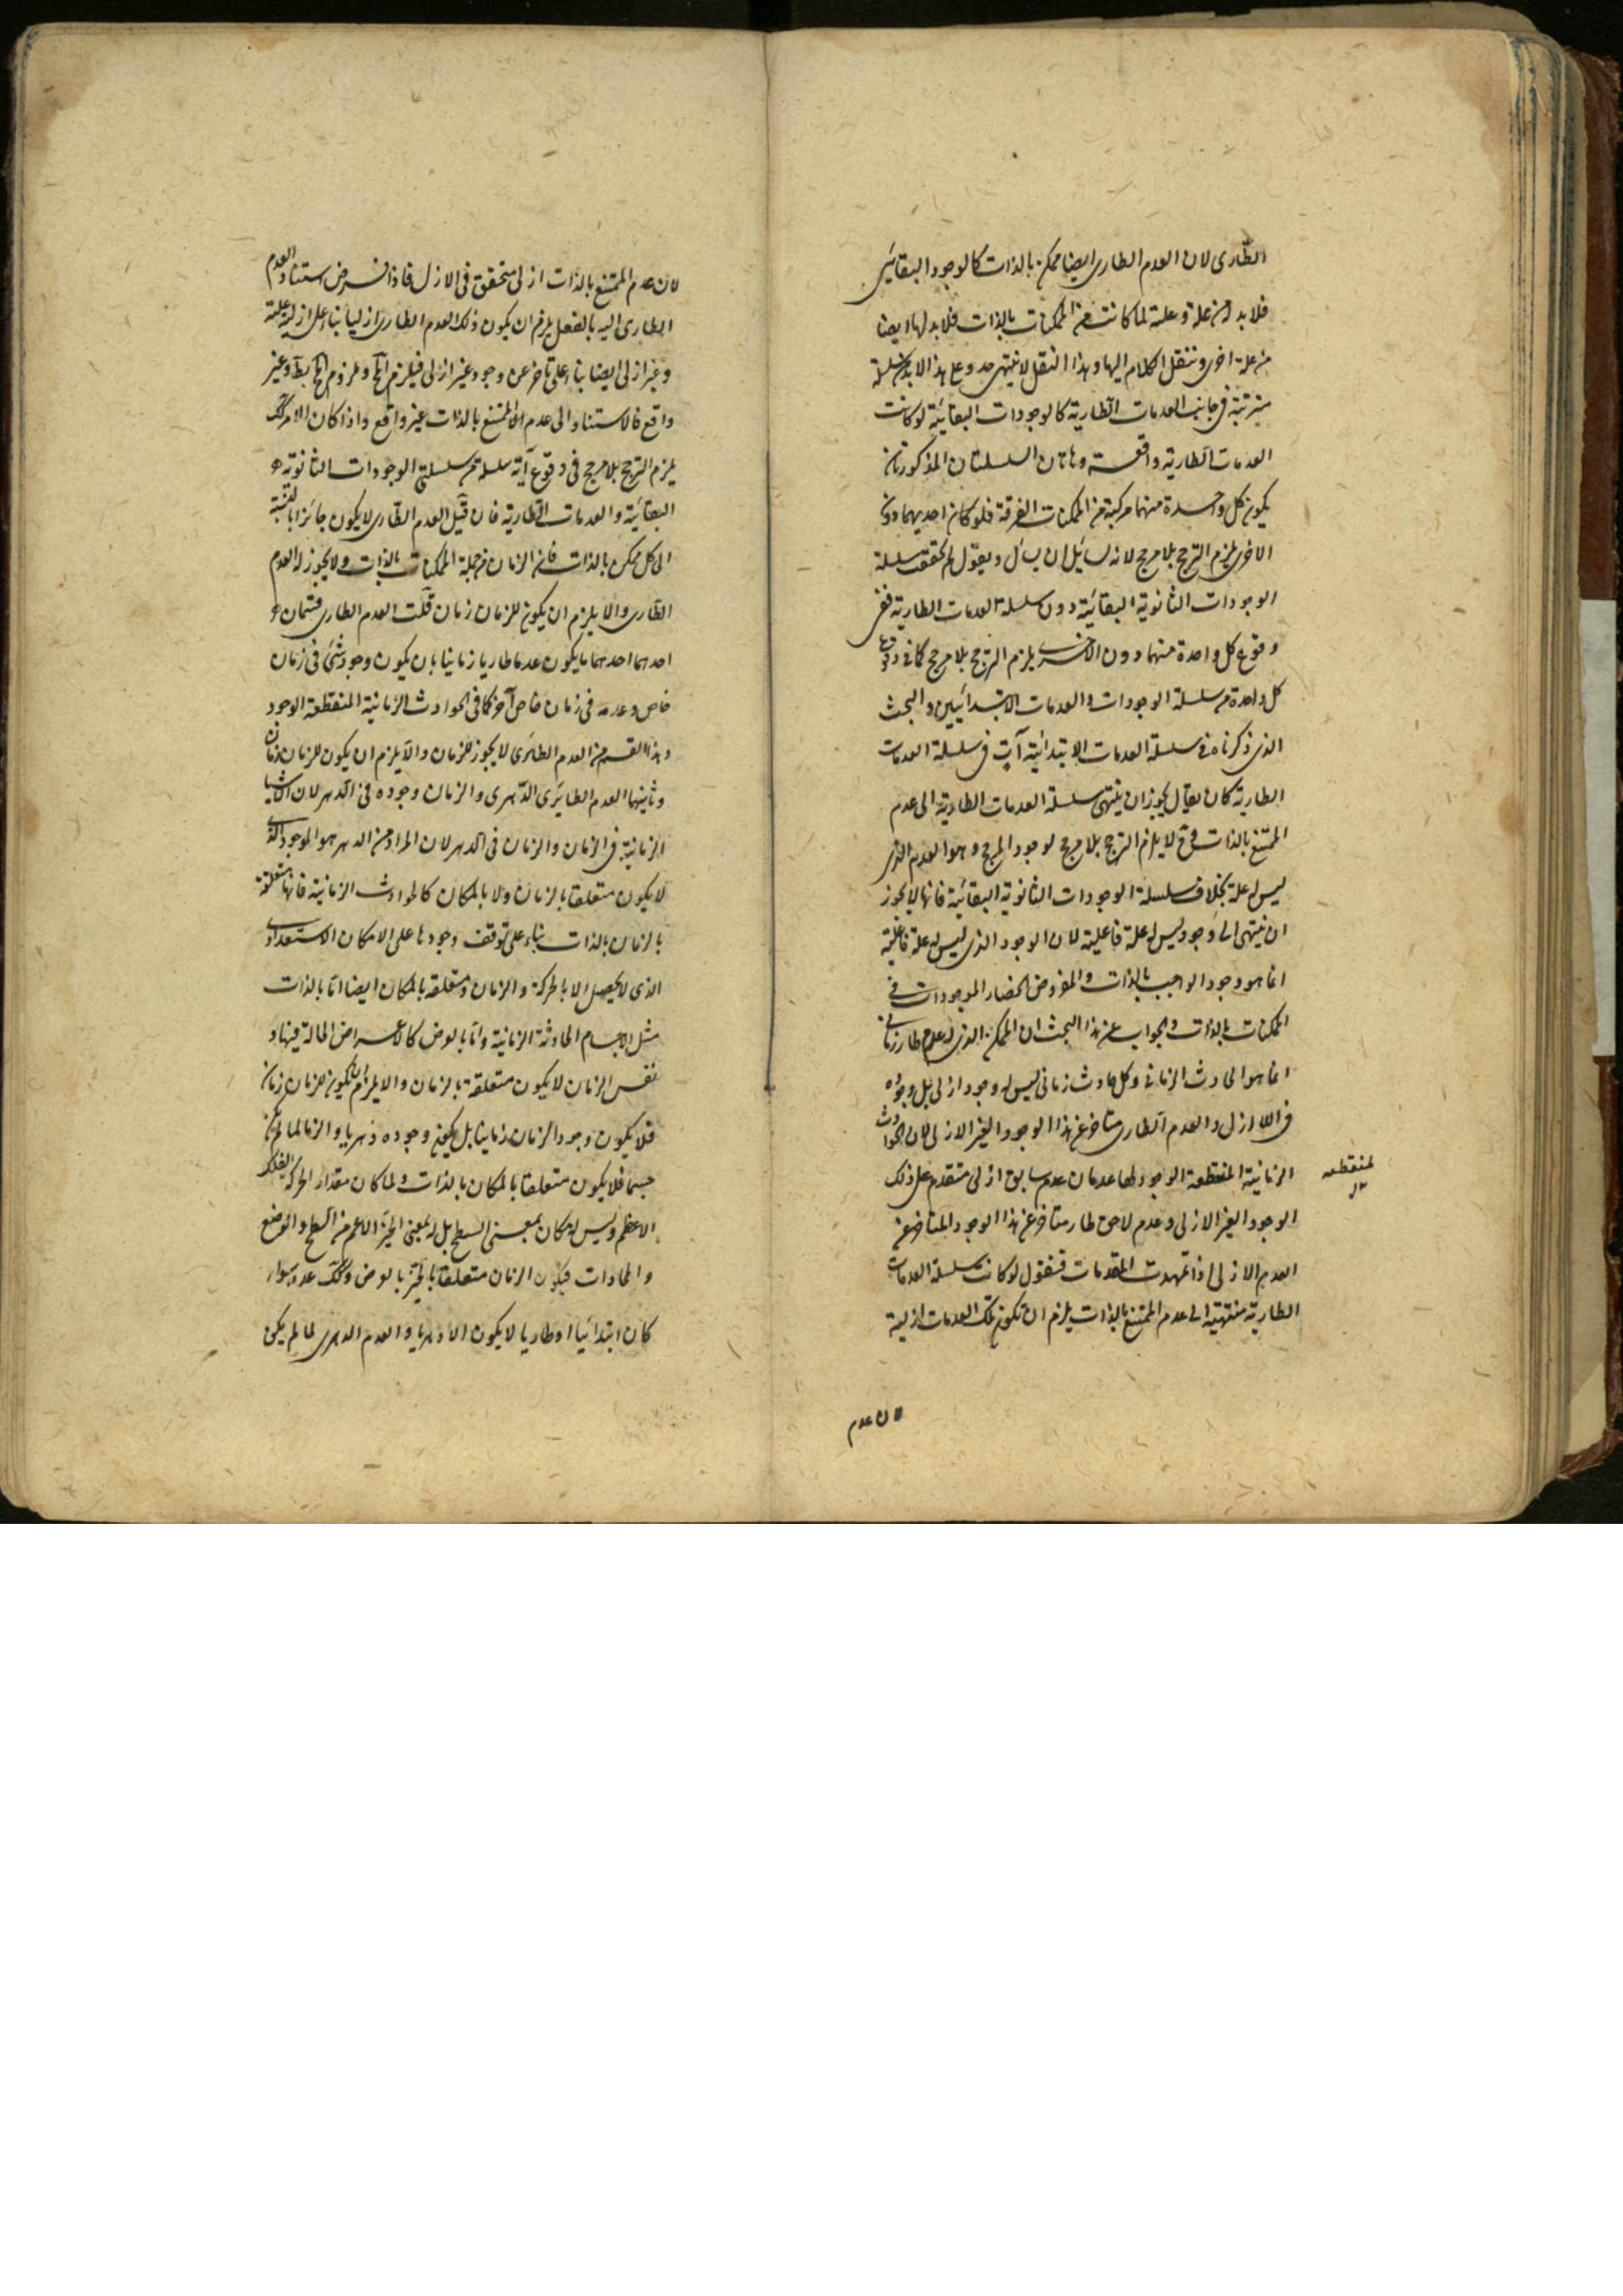 الطّارى لان العدم الطارى ايضا ممكن بالذات كالوجود البقائى
فلا بد له من علة وعلته لما كانت من الممكنات بالذات فلا بد لها ايضا
من علة اخرى وننقل الكلام اليها وهذا النقل لا ينتهى بعد وعلى هذا لا بد من سلسلة
مترتبة فى جانب العدمات الطارية كالوجودات البقائية لو كانت
العدمات الطارية واقعة وهاتان السلسلتان المذكورتان
يكون كل واحدة منهما مركبة من الممكنات الصرفة فلو كان احديهما دون
الاخرى يلزم الترجح بلا مرجح لانه لسائل ان يسأل ويقول لم تحققت سلسلة
الوجودات الثانوية البقائية دون سلسلة العدمات الطارية ففى
وقوع كل واحدة منهما دون الاخرى يلزم الترجح بلا مرجح كما فى وقوع
كل واحدة من سلسلة الوجودات والعدمات الابتدائيين والبحث
الذى ذكرناه فى سلسلة العدمات الابتدائية آت فى سلسلة العدمات
الطارية كان يقال يجوز ان ينتهى سلسلة العدمات الطارية الى عدم
الممتنع بالذات وح لا يلزم الترجح بلا مرجح لوجود المرجح وهو العدم الذى
ليس له علة بخلاف سلسلة الوجودات الثانوية البقائية فانها لا يجوز
ان ينتهى الى وجود ليس له علة فاعلية لان الوجود الذى ليس له علة فاعلية
انما هو وجود الواجب بالذات والمفروض انحصار الموجودات فى
الممكنات بالذات والجواب عن هذا البحث ان الممكن الذى له عدم طار زمانى
انما هو الحادث الزمانى وكل حادث زمانى ليس له وجود ازلى بل وجوده
فى اللا ازل والعدم الطارى متاخر عن هذا الوجود الغير الازلى لان الحوادث
الزمانية المنقطعة الوجود لها عدمان عدم سابق ازلى متقدم على ذلك
المنقطعه
الوجود الغير الازلى وعدم لاحق طار متاخر عن هذا الوجود المتاخر عن
العدم الازلى اذا تمهدت المقدمات فنقول لو كانت سلسلة العدمات
الطارية منتهية الى عدم الممتنع بالذات يلزم ان تكون تلك العدمات ازلية
لان عدم
لان عدم الممتنع بالذات ازلى متحقق فى الازل فاذا فرض استناد العدم
الطارى اليه بالفعل يلزم ان يكون ذلك العدم الطارى ازليا بناء على ازلية علته
وغير ازلى ايضا بناء على تاخره عن وجود غير ازلى فيلزم المح وملزوم المح بط وغير
واقع فالاستناد الى عدم الممتنع بالذات غير واقع واذا كان الامر كك
يلزم الترجح بلا مرجح فى وقوع آية سلسلة من سلسلتى الوجودات الثانوية
البقائية والعدمات الطارية فان قيل العدم الطارى لا يكون جائزا بالنسبة
الى كل ممكن بالذات فان الزمان من جملة الممكنات بالذات ولا يجوز له العدم
الطارى والا يلزم ان يكون للزمان زمان قلت العدم الطارى قسمان
احدهما احدهما يكون عدما طاريا زمانيا بان يكون وجود شئ فى زمان
خاص وعدمه فى زمان خاص آخر كما فى الحوادث الزمانية المنقطعة الوجود
وهذا القسم من العدم الطارى لا يجوز للزمان والا يلزم ان يكون للزمان زمان
وثانيهما العدم الطارى الدهرى والزمان وجوده فى الدهر لان الاشيا
الزمانية فى الزمان والزمان فى الدهر لان المراد من الدهر هو الموجود الذى
لا يكون متعلقا بالزمان ولا بالمكان كالحوادث الزمانية فانها متعلقة
بالزمان بالذات بناء على توقف وجودها على الامكان الاستعدادى
الذى لا يحصل الا بالحركة والزمان ومتعلقة بالمكان ايضا اما بالذات
مثل الاجسام الحادثة الزمانية واما بالعرض كالاعراض الحالة فيها و
نفس الزمان لا يكون متعلقة بالزمان والا يلزم ان يكون للزمان زمان
فلا يكون وجود الزمان زمانيا بل يكون وجوده دهريا والزمان لما لم يكن
جسما فلا يكون متعلقا بالمكان بالذات ولما كان مقدار الحركة الفلك
الاعظم وليس له مكان بمعنى السطح بل له بمعنى الحيز الاعم من السطح والوضع
والمحاذات فيكون الزمان متعلقا بالحيز بالعرض وكك عدمه سواء
كان ابتدائيا او طاريا لا يكون الا دهريا والعدم الدهرى لما لم يكن